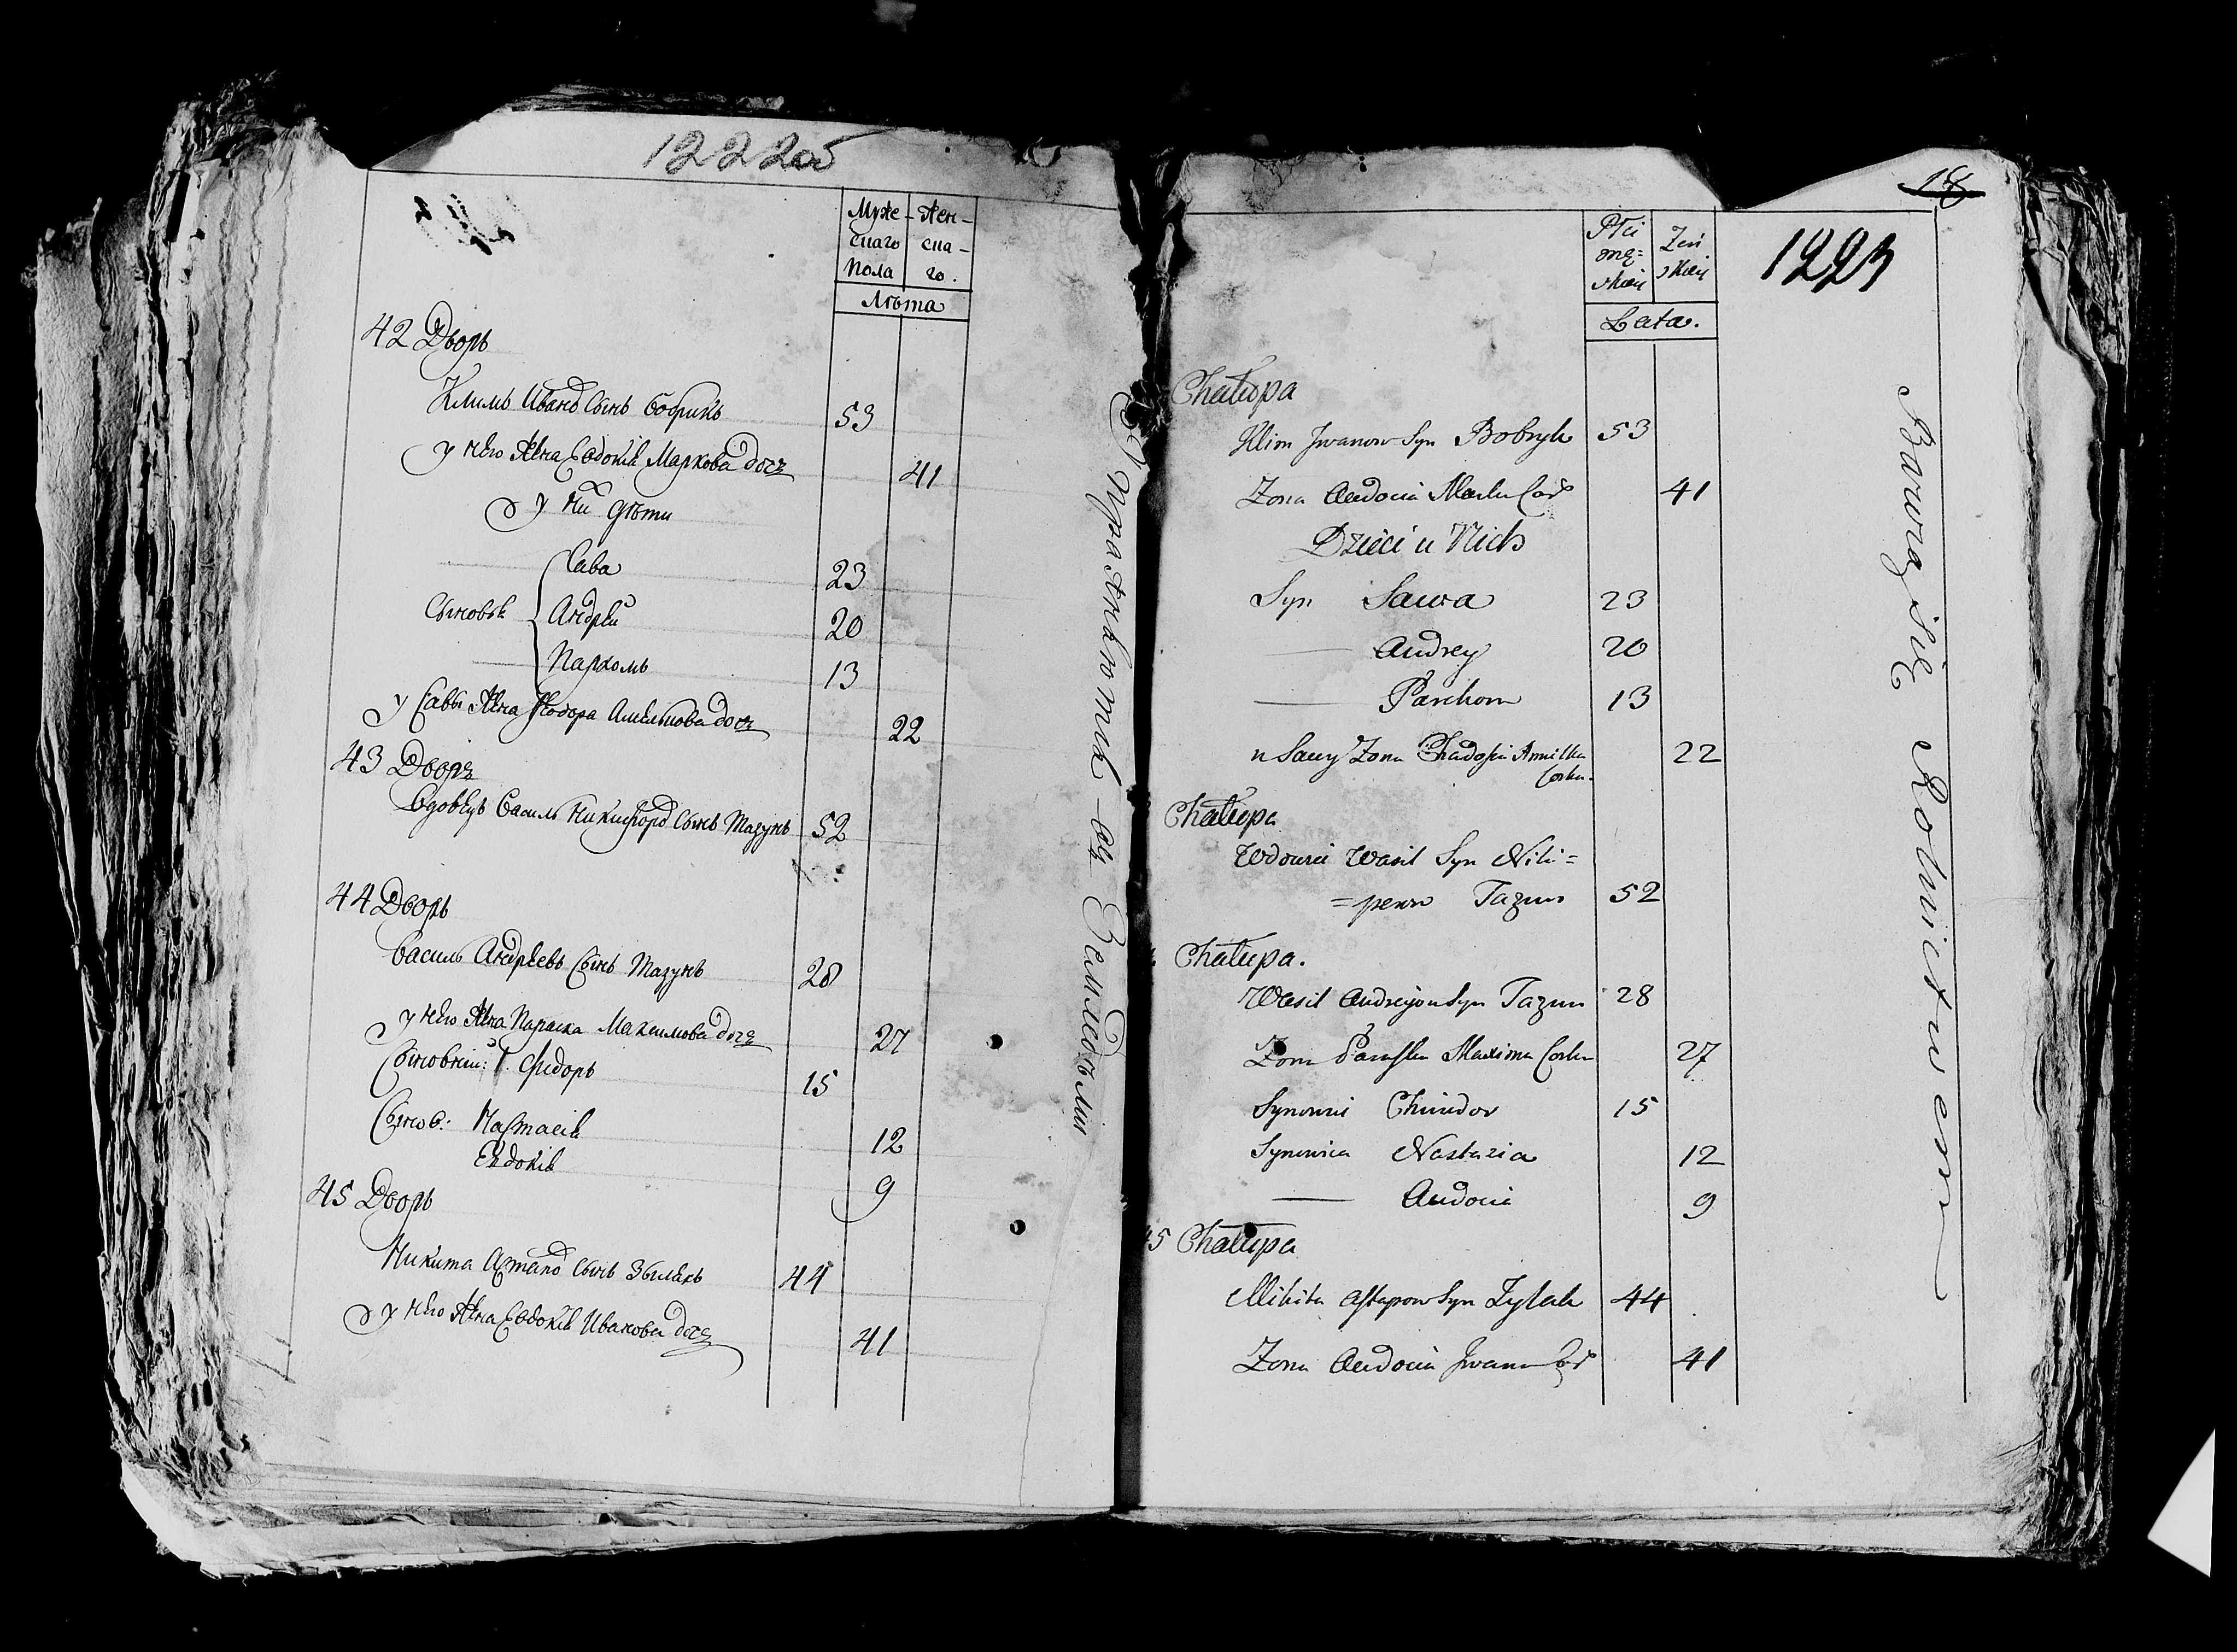 1222об
Муже-
скаго
Пола
Жен-
ска-
го.
Лѣта
42 Дворъ
Климъ Иванов Сынъ Бобрикъ 53
у него Жена Евдокія Маркова дочь 41
у них дѣти
Сава 23
Сыновья Андрей 20
Пархомъ 13
у Савы Жена Ѳеодора дочь 22
43 Дворъ
Вдовецъ Василь Никифоров Сынъ Тазунъ 52
44 Дворъ
Василь Андреевъ Сынъ Тазунъ 28
у него Жена Параска Максимова дочь 27
Сыновецъ: Ѳидоръ 15
Сынов: Настасія 12
Евдокія 9
45 Дворъ
Никита Астапов Сынъ Зылякъ 44
у него Жена Евдокія Иванова дочь 41
Упражняются въ Земледѣліи
18
1223
Płci
mę=
skiey
Żeń
skiey
Lata.
Chałupa
Klim Iwanow Syn Bobryk 53
Żona Audocia Marka Cor 41
Dzieci u Nich
Syn Sawa 23
Andrey 20
Parchom 13
u Sawy Żona Chadosia 22
Corka.
Chałupa
Wdowiec Wasil Syn Niki=
=perow Tazun 52
Chałupa.
Wasil Andreyow Syn Tazun 28
Żona Paraska Maxima Corka 27
Synowiec Chwiedor 15
Synowica Nastazia 12
Audocia 9
45 Chałupa
Mikita Astapow Syn Zylak 44
Żona Audocia Iwana Cor 41
Bawią się Rolnictwem